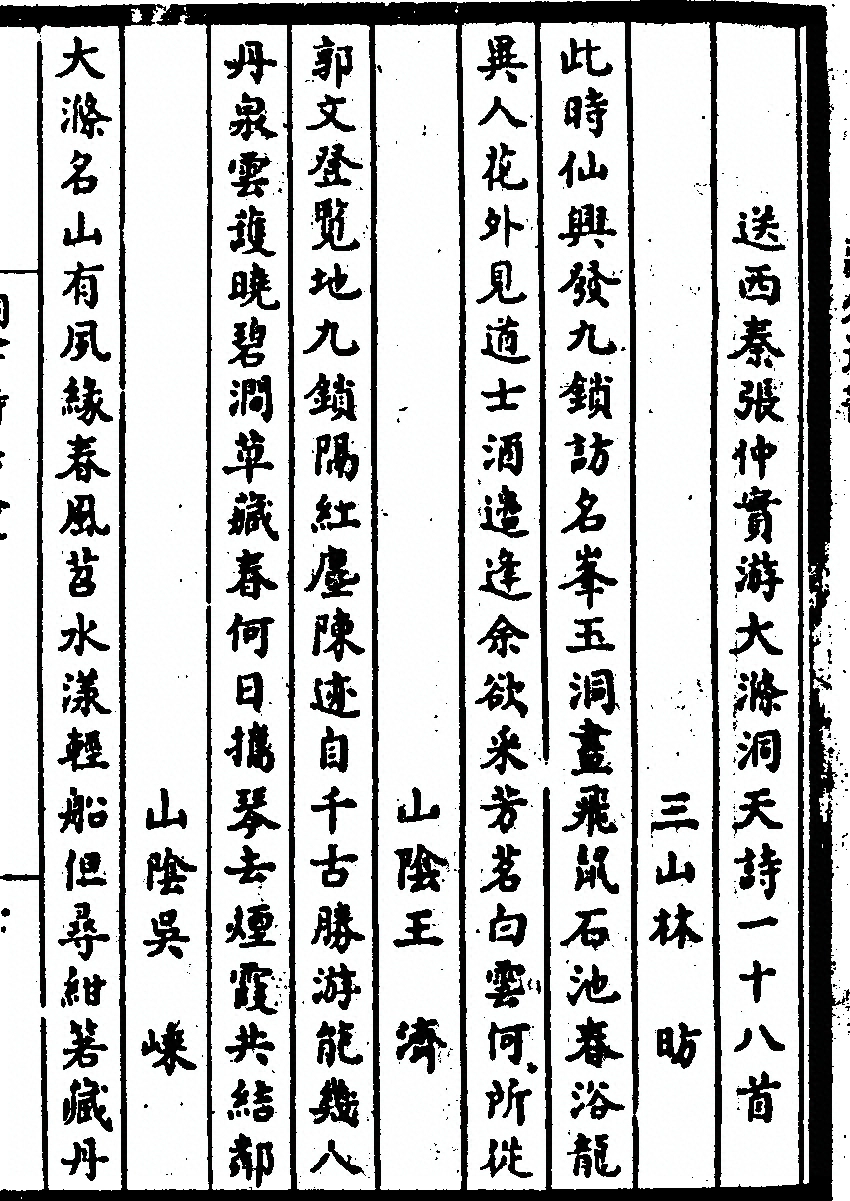 送西秦張仲實游大滌洞天詩一十八首
三山林昉
此時仙興發九鎖訪名峯玉洞晝飛鼠石池春浴龍
異人花外見道士酒邊逢余欲采芳茗白雲何所從
山陰王濟
郭文登覽地九鎖隔紅塵陳迹自千古勝游能幾人
丹泉雲護曉碧澗草藏春何日攜琴去煙霞共結鄰
山陰吳㟒
大滌名山有夙緣春風苕水漾輕船但尋紺箬藏丹